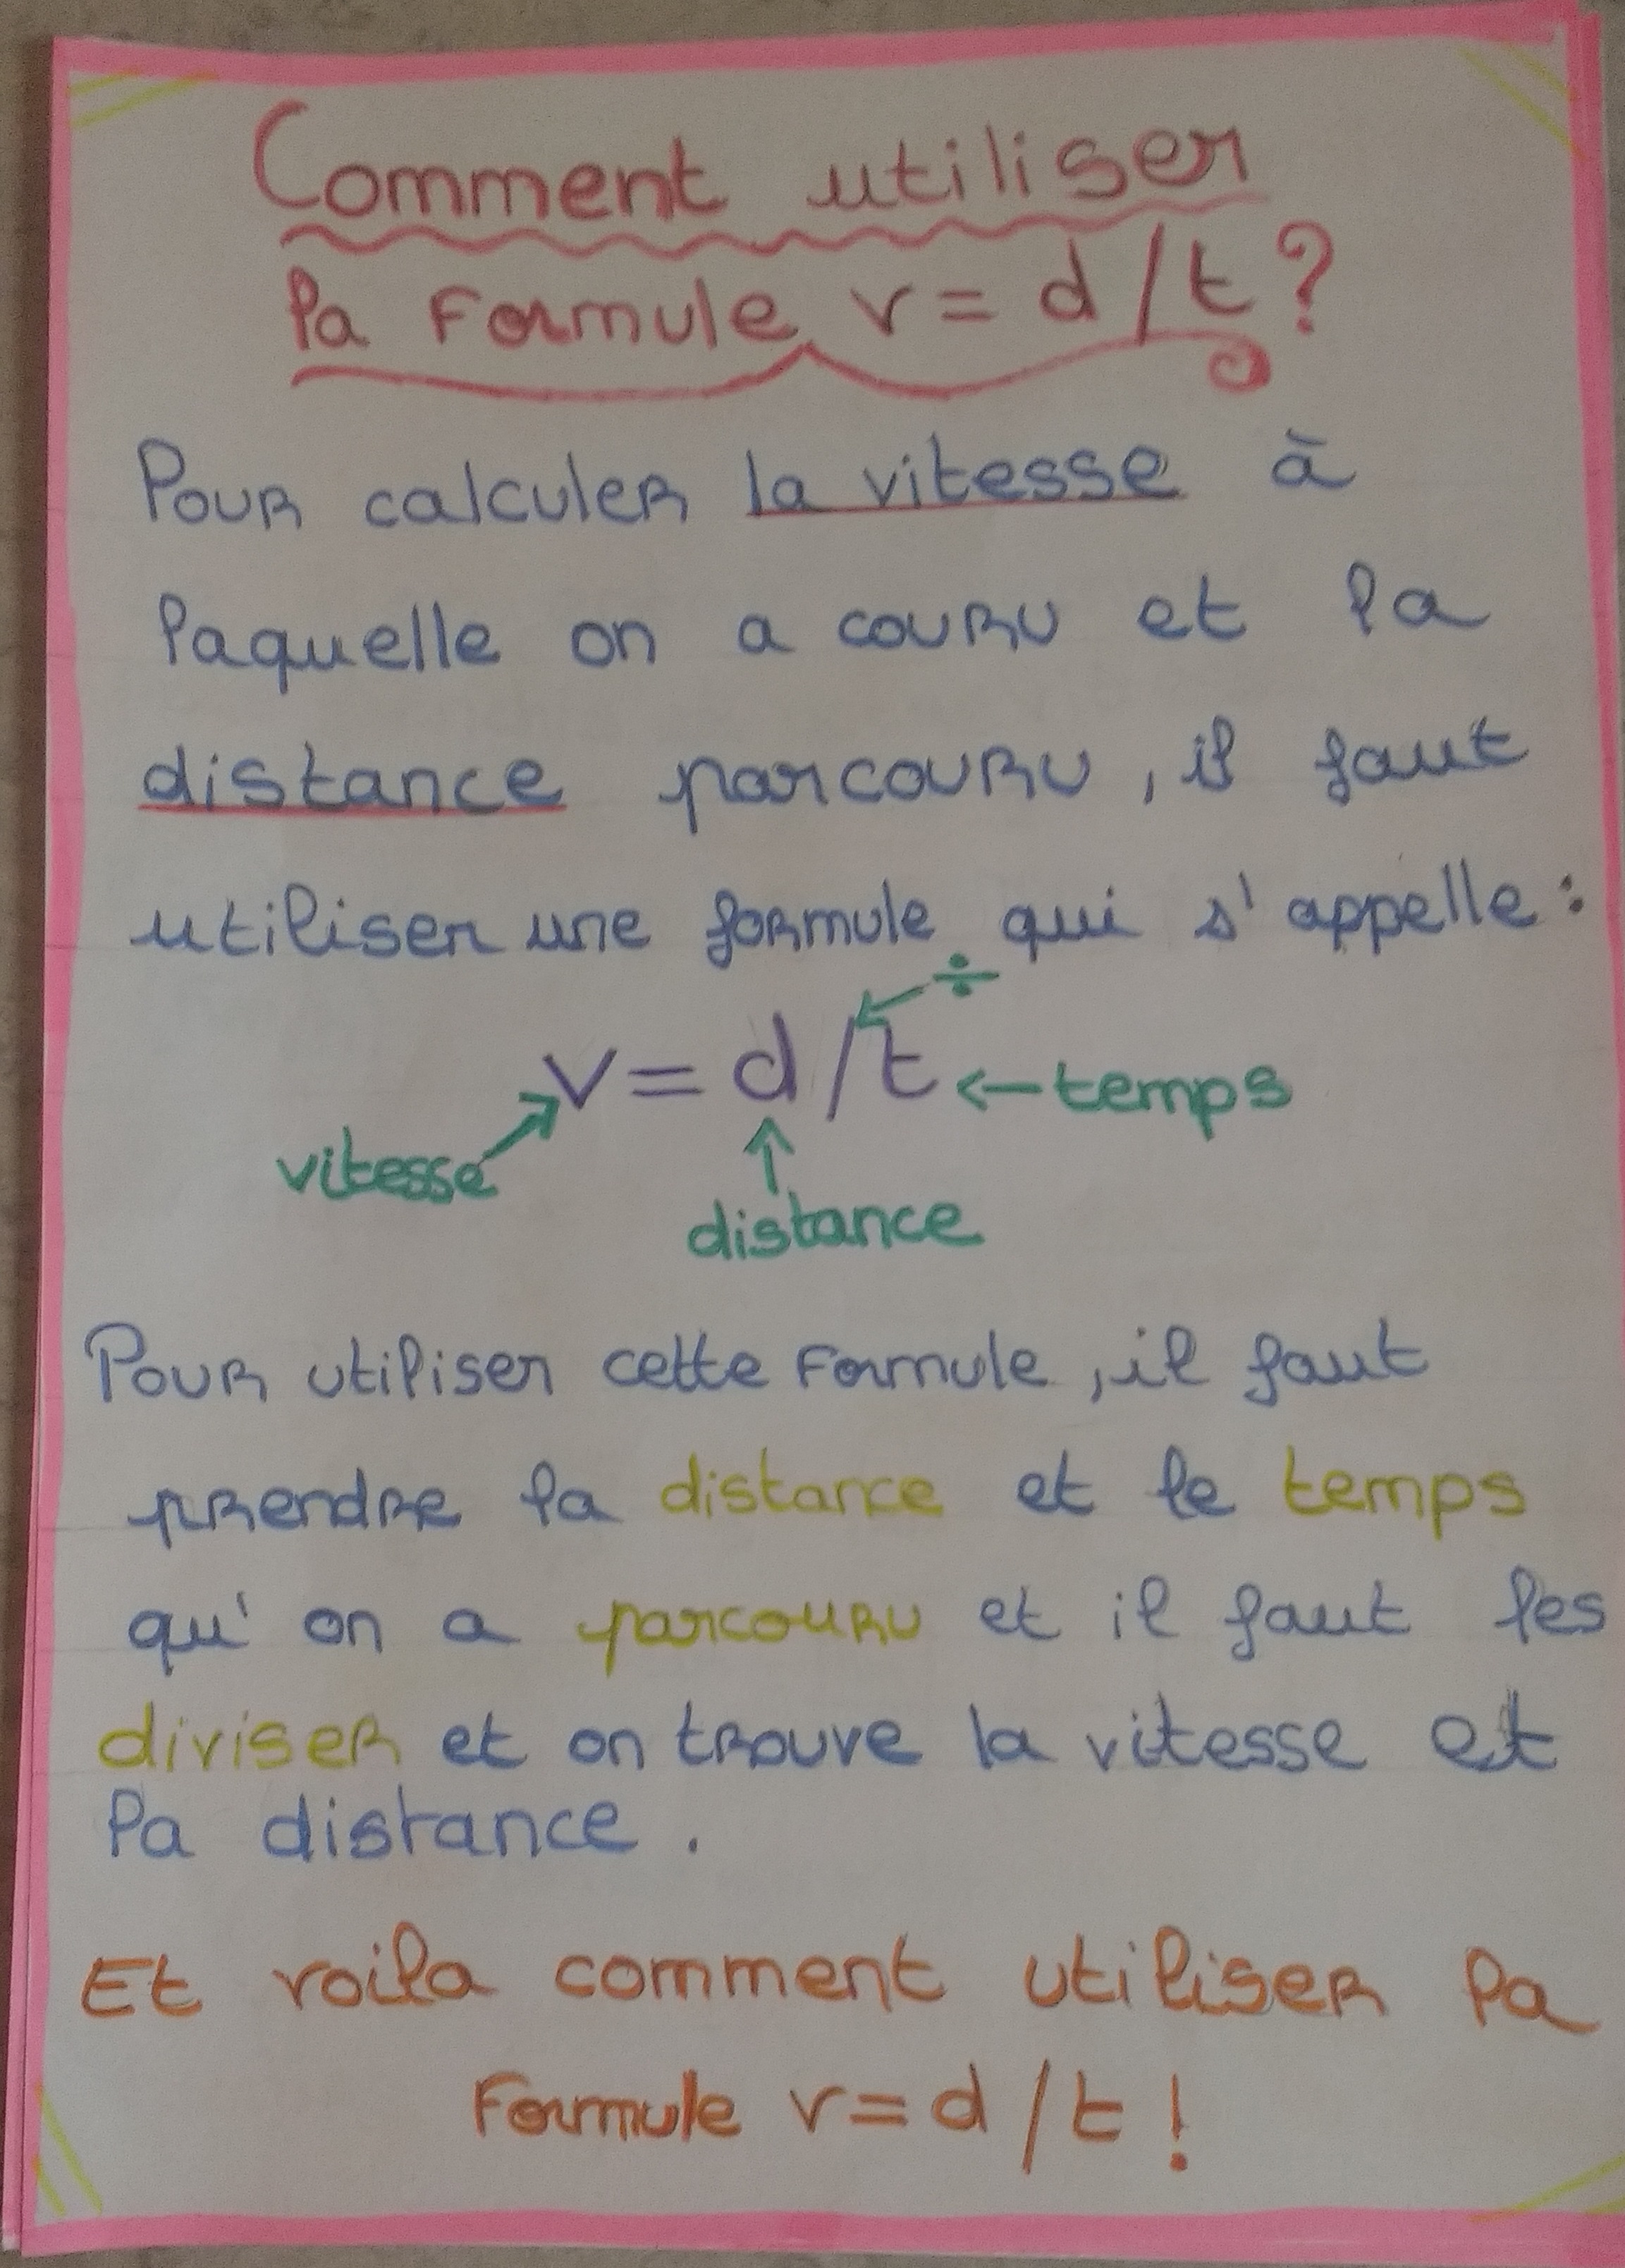 Comment utiliser
la Formule v = d / t ?
Pour calculer la vitesse à
laquelle on a couru et la
distance parcouru, il faut
utiliser une formule qui s'appelle :
÷
v = d / t ← temps
vitesse
distance
Pour utiliser cette Formule, il faut
prendre la distance et le temps
qu'on a parcouru et il faut les
diviser et on trouve la vitesse et
la distance.
Et voila comment utiliser la
Formule v = d / t !